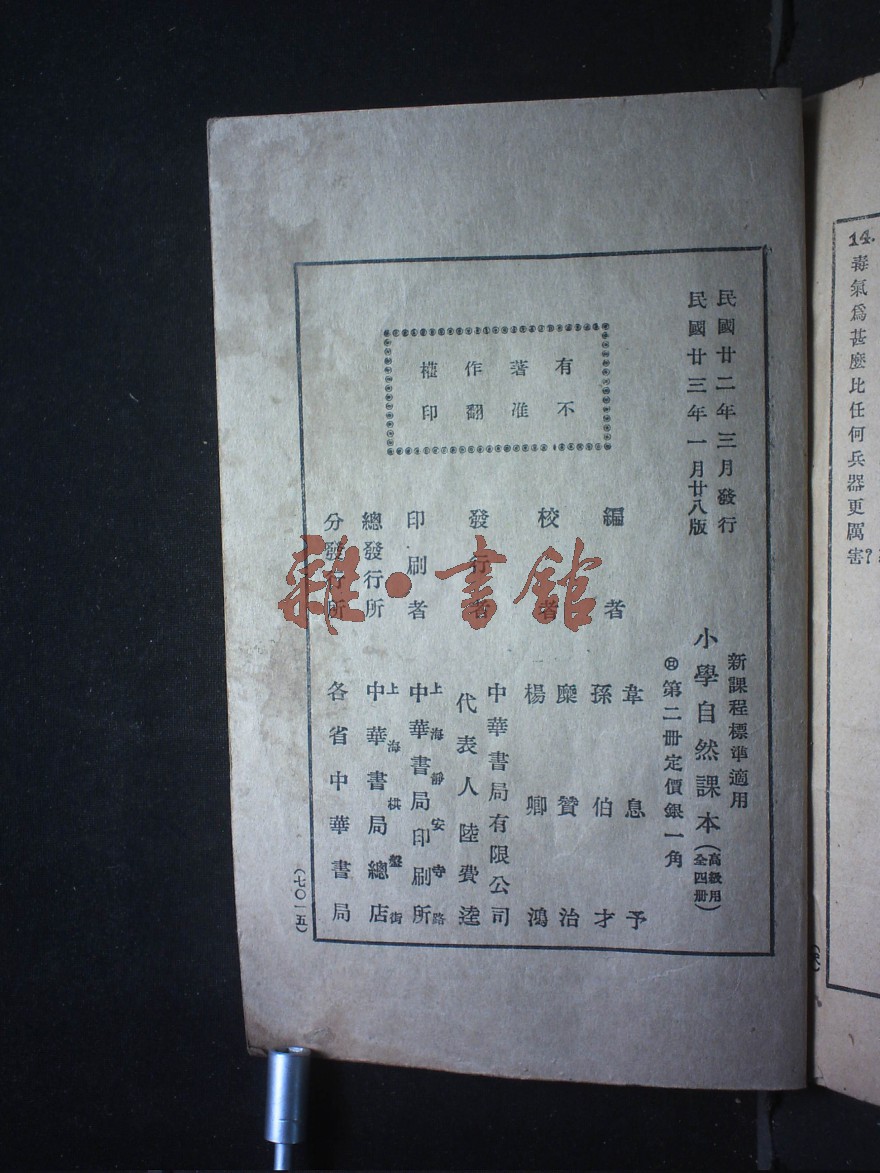 14.毒氣爲甚麼比任何兵器更厲害?
民國廿二年三月發行
民國廿三年一月廿八版
有著作權
不准翻印
新課程標準適用
小學自然課本(高級用全四册)
第二册定價銀一角
編者 韋息予 孫伯才
校者 糜贊治 楊卿鴻
發行者 中華書局有限公司
代表人 陸費逵
印刷者 上海靜安寺路
中華書局印刷所
總發行所 上海棋盤街
中華書局總店
分發行所 各省中華書局
(七〇一五)
雜·書館